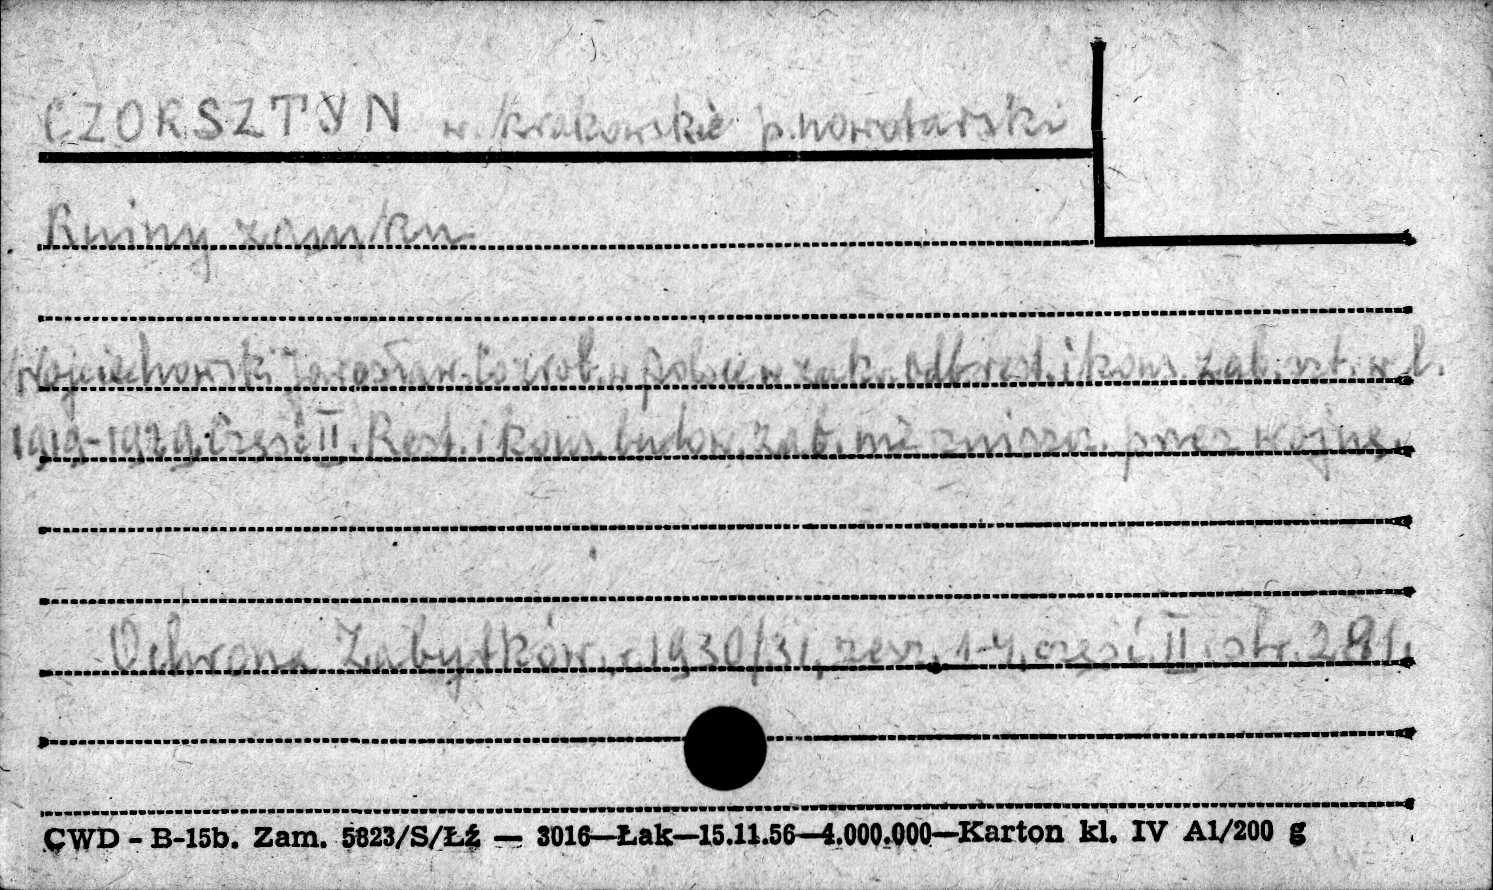 CZORSZTYN w. krakowskie p. nowotarski
Ruiny zamku
Wojciechowski Jarosław. Co zrob. w Polsce w zakr. odb. rest. i kons. zab. szt. w l.
1919-1929. Część II. Rest. i kons. budow. zab. nie zniszcz. przez wojnę.
Ochrona Zabytków, r. 1930/31, zesz. 1-4, część II. str. 281.
CWD - B-15b. Zam. 5823/S/ŁŹ — 3016—Łak—15.11.56—4.000.000—Karton kl. IV A1/200 g